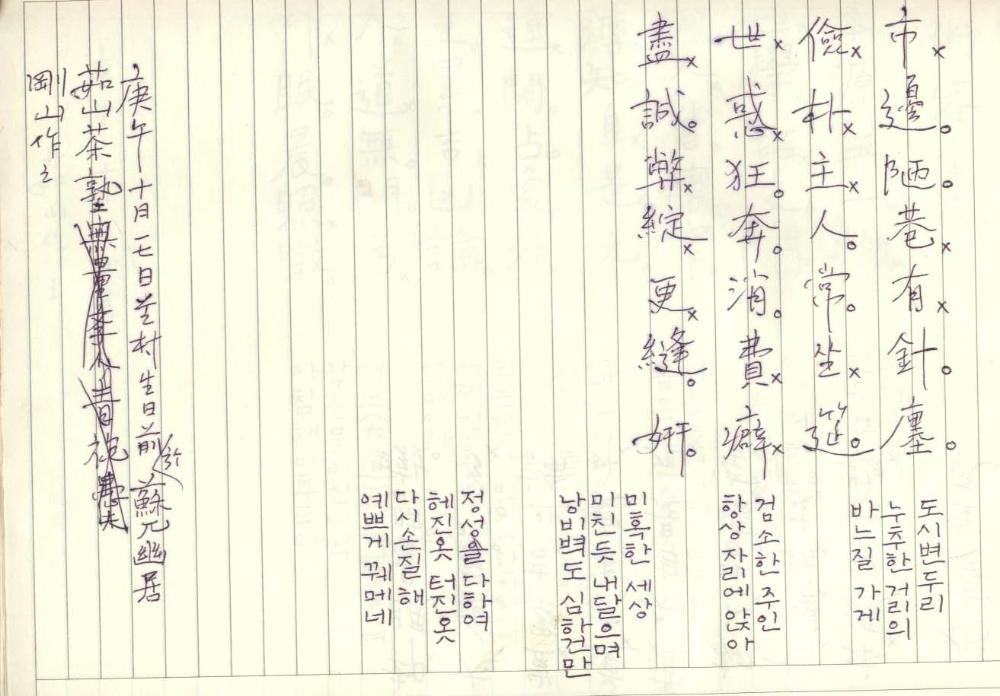 市邊陋巷有針廛
儉朴主人常坐筵
世惑狂奔消費癖
盡誠弊綻更縫妍
도시변두리
누추한 거리의
바느질 가게
검소한 주인
항상 자리에 앉아
미혹한 세상
미친듯 내달으며
낭비벽도 심하건만
정성을 다하여
헤진옷 터진옷
다시손질해
예쁘게 꿰메네
庚午 十月 七日 村生日前 於 蘇 幽居
茹山茶塾
剛山作之